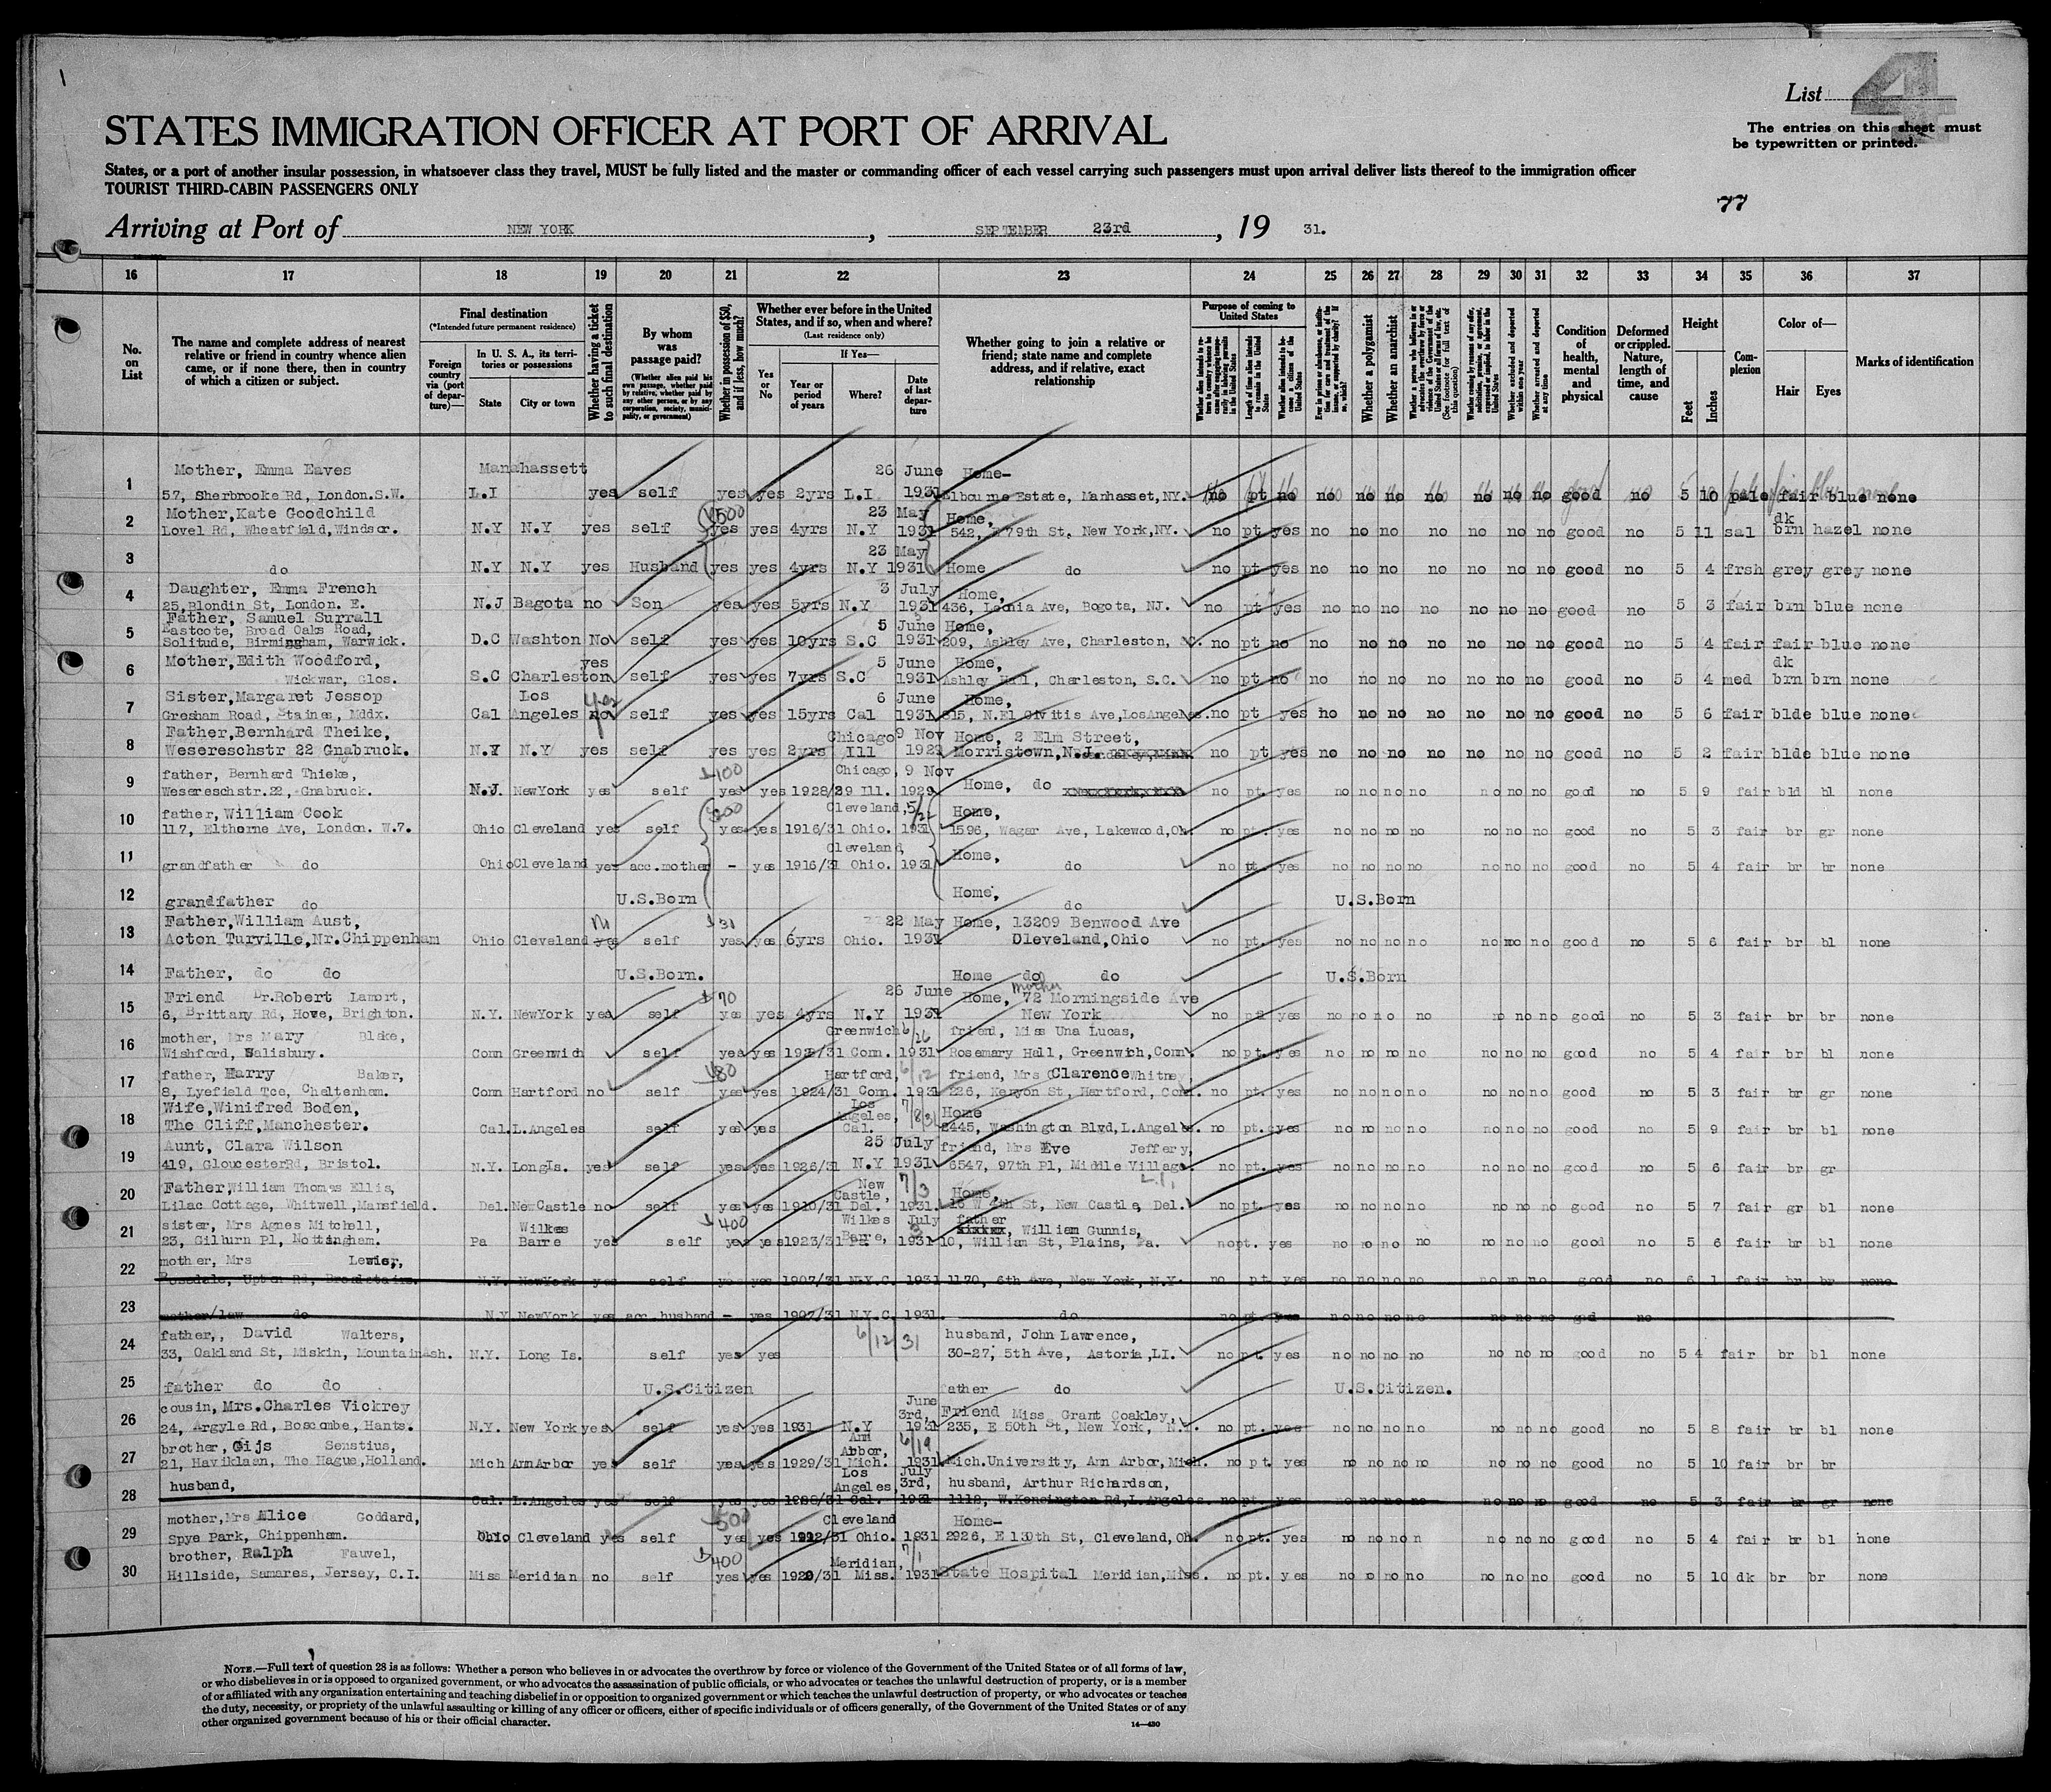 List 4
The entries on this sheet must
be typewritten or printed.
STATES IMMIGRATION OFFICER AT PORT OF ARRIVAL
States, or a port of another insular possession, in whatsoever class they travel, MUST be fully listed and the master or commanding officer of each vessel carrying such passengers must upon arrival deliver lists thereof to the immigration officer
TOURIST THIRD-CABIN PASSENGERS ONLY
77
Arriving at Port of NEW YORK, SEPTEMBER 23rd, 19 31.
16 17 18 19 20 21 22 23 24 25 26 27 28 29 30 31 32 33 34 35 36 37
No. on List
The name and complete address of nearest relative or friend in country whence alien came, or if none there, then in country of which a citizen or subject.
Final destination
(*Intended future permanent residence)
Foreign country via (port of departure)—
In U. S. A., its territories or possessions
State
City or town
Whether having a ticket to such final destination
By whom was passage paid?
(Whether alien paid his own passage, whether paid by relative, whether paid by any other person, or by any corporation, society, municipality, or government)
Whether in possession of $50, and if less, how much?
Whether ever before in the United States, and if so, when and where?
(Last residence only)
If Yes—
Yes or No
Year or period of years
Where?
Date of last departure
Whether going to join a relative or friend; state name and complete address, and if relative, exact relationship
Purpose of coming to United States
Length of time alien intends to remain in the United States
Whether alien intends to become a citizen of the United States
Whether a polygamist
Whether an anarchist
Whether excluded and deported within one year
Whether arrested and deported at any time
Condition of health, mental and physical
Deformed or crippled. Nature, length of time, and cause
Height
Feet
Inches
Complexion
Color of—
Hair
Eyes
Marks of identification
Mother, Emma Eaves Manahassett 26 June Home-
1 57, Sherbrooke Rd, London.S.W. L.I yes self yes yes 2yrs L.I 1931 Estate, Manhasset,NY. no pt no no no no no no no no good no 5 10 pale fair blue none
Mother,Kate Goodchild $500 23 May Home, dk
2 Lovel Rd, Wheatfield,Windsor. N.Y N.Y yes self yes yes 4yrs N.Y 1931 542, E 79th St, New York,NY. no pt yes no no no no no no no good no 5 11 sal brn hazel none
23 May
3 do N.Y N.Y yes Husband yes yes 4yrs N.Y 1931 Home do no pt yes no no no no no no no good no 5 4 frsh grey grey none
Daughter, Emma French 3 July Home,
4 25,Blondin St, London. E. N.J Bagota no Son yes yes 5yrs N.Y 1931 436, Leonia Ave, Bogota, NJ. no pt yes no no no no no no no good no 5 3 fair brn blue none
Father, Samuel Surrall
Eastcote, Broad Oaks Road, 5 June Home,
5 Solitude, Birmingham, Warwick. D.C Washton No self yes yes 10yrs S.C 1931 209, Ashley Ave, Charleston, no pt no no no no no no no no good no 5 4 fair fair blue none
Mother,Edith Woodford, yes 5 June Home, dk
6 Wickwar, Glos. S.C Charleston self yes yes 7yrs S.C 1931 Ashley Hall, Charleston, S.C. no pt no no no no no no no no good no 5 4 med brn brn none
Sister,Margaret Jessop Los yes 6 June Home,
7 Gresham Road, Staines, Mddx. Cal Angeles no self yes yes 15yrs Cal 1931 N.El Ave,LosAngeles. no pt yes no no no no no no no good no 5 6 fair blde blue none
Father,Bernhard Theike, Chicago 9 Nov Home, 2 Elm Street,
8 Wesereschstr 22 Gnabruck. N.Y N.Y yes self yes yes 2yrs Ill 1929 Morristown,N.J. no pt yes no no no no no no no good no 5 2 fair blde blue none
father, Bernhard Thieke, $100 Chicago, 9 Nov
9 Wesereschstr.22, Gnabruck. N.J. NewYork yes self yes yes 1928/29 Ill. 1929 Home, do no pt. yes no no no no no no no good no 5 9 fair bld bl none
father,William Cook $200 Cleveland, 5/22 Home,
10 117, Elthorne Ave, London. W.7. Ohio Cleveland yes self yes yes 1916/31 Ohio. 1931 1596, Wagar Ave, Lakewood,Oh. no pt. yes no no no no no no no good no 5 3 fair br gr none
Cleveland, Home,
11 grandfather do Ohio Cleveland yes acc.mother - yes 1916/31 Ohio. 1931 do no pt yes no no no no no no no good no 5 4 fair br br none
12 grandfather do U.S.Born Home, do U.S.Born
Father,William Aust, $31 22 May Home, 13209 Benwood Ave
13 Acton Turville,Nr.Chippenham Ohio Cleveland yes self yes yes 6yrs Ohio. 1931 Dleveland,Ohio no pt. yes no no no no no no no good no 5 6 fair br bl none
14 Father, do do U.S.Born. Home do do U.S.Born
Friend Dr.Robert Lamort, $70 26 June Home, mother 72 Morningside Ave
15 6, Brittany Rd, Hove, Brighton. N.Y. NewYork yes self yes yes 4yrs N.Y 1931 New York no pt yes no no no no no no no good no 5 3 fair br br none
mother, Mrs Mary Blake, Greenwich 6/26 friend, Miss Una Lucas,
16 Wishford, Salisbury. Conn Greenwich self yes yes Conn. 1931 Rosemary Hall, Greenwich,Conn. no pt. yes no no no no no no no good no 5 4 fair br bl none
father, Harry Baker, $80 Hartford, 6/12 friend, Mrs Clarence Whitney,
17 8, Lyefield Tce, Cheltenham. Conn Hartford no self yes yes 1924/31 Conn. 1931 226, Kenyon St, Hartford, Conn. no pt. yes no no no no no no no good no 5 3 fair br gr none
Wife,Winifred Boden, Los Angeles, 7/8/31 Home
18 The Cliff,Manchester. Cal. L.Angeles self yes yes Cal. 2445, Washington Blvd,L.Angeles. no pt. yes no no no no no no no good no 5 9 fair br bl none
Aunt, Clara Wilson 25 July friend, Mrs Eve Jeffery,
19 419, GloucesterRd, Bristol. N.Y. LongIs. yes self yes yes 1926/31 N.Y 1931 6547, 97th Pl, Middle Village. L.I. no pt. yes no no no no no no no good no 5 6 fair br gr
Father,William Thomas Ellis, New Castle, 7/3 Home,
20 Lilac Cottage, Whitwell,Mansfield. Del. NewCastle no self yes yes 1910/31 Del. 1931. 16 W 4th St, New Castle, Del. no pt yes no no no no no no no good no 5 7 fair gr bl none
sister, Mrs Agnes Mitchell, Wilkes $400 Wilkes July father
21 23, Gilburn Pl, Nottingham. Pa Barre yes self yes yes 1923/31 Barre, Pa 3 1931 William Gunnis, 10, William St, Plains, Pa. no pt. yes no no no no no no no good no 5 6 fair br bl none
mother, Mrs Lewisr,
22 Rosedale, Upton Rd, Broadstairs. N.Y. NewYork yes self yes yes 1907/31 N.Y.C. 1931 1170, 6th Ave, New York, N.Y. no pt yes no no no no no no no good no 6 1 fair br br none
23 mother/law do N.Y NewYork yes acc.husband - yes 1907/31 N.Y.C. 1931. do no pt yes no no no no no no no god no
father,, David Walters, 6/12/31 husband, John Lawrence,
24 33, Oakland St, Miskin, Mountainash. N.Y. Long Is. self yes yes 30-27, 5th Ave, Astoria,LI. no pt yes no no no no no no no good no 5 4 fair br bl none
25 father do do U.S.Citizen father do U.S.Citizen.
cousin, Mrs.Charles Vickrey June 3rd, Friend Miss Grant Coakley,
26 24, Argyle Rd, Boscombe, Hants. N.Y. New York yes self yes yes 1931 N.Y 1931 235, E 50th St, New York, N.Y. no pt. yes no no no no no no no good no 5 8 fair br bl none
brother, Gijs Senstius, Ann Arbor, 6/19
27 21, Haviklaan, The Hague,Holland. Mich AnnArbor yes self yes yes 1929/31 Mich. 1931 Mich.University, Ann Arbor,Mich. no pt yes no no no no no no no good no 5 10 fair br br
husband, Los Angeles, July 3rd, husband, Arthur Richardson,
28 Cal. L.Angeles yes self yes yes Cal. 1931 1112, W.Kensington Rd,L.Angeles. no pt. yes no no no no no no no good no 5 3 fair br gr none
mother,Mrs Alice Goddard, $500 Cleveland Home-
29 Spye Park, Chippenham. Ohio Cleveland yes self yes yes Ohio. 1931 2926, E 130th St, Cleveland,Oh. no pt. yes no no no n no no no good no 5 4 fair br bl none
brother, Ralph Fauvel, $400 Meridian, 7/1
30 Hillside, Samares, Jersey, C.I. Miss Meridian no self yes yes Miss. 1931 State Hospital Meridian,Miss. no pt. yes no no no no no no no good no 5 10 dk br br none
NOTE.—Full text of question 28 is as follows: Whether a person who believes in or advocates the overthrow by force or violence of the Government of the United States or of all forms of law,
or who disbelieves in or is opposed to organized government, or who advocates the assassination of public officials, or who advocates or teaches the unlawful destruction of property, or is a member
of or affiliated with any organization entertaining and teaching disbelief in or opposition to organized government or which teaches the unlawful destruction of property, or who advocates or teaches
the duty, necessity, or propriety of the unlawful assaulting or killing of any officer or officers, either of specific individuals or of officers generally, of the Government of the United States or of any
other organized government because of his or their official character.
14—430